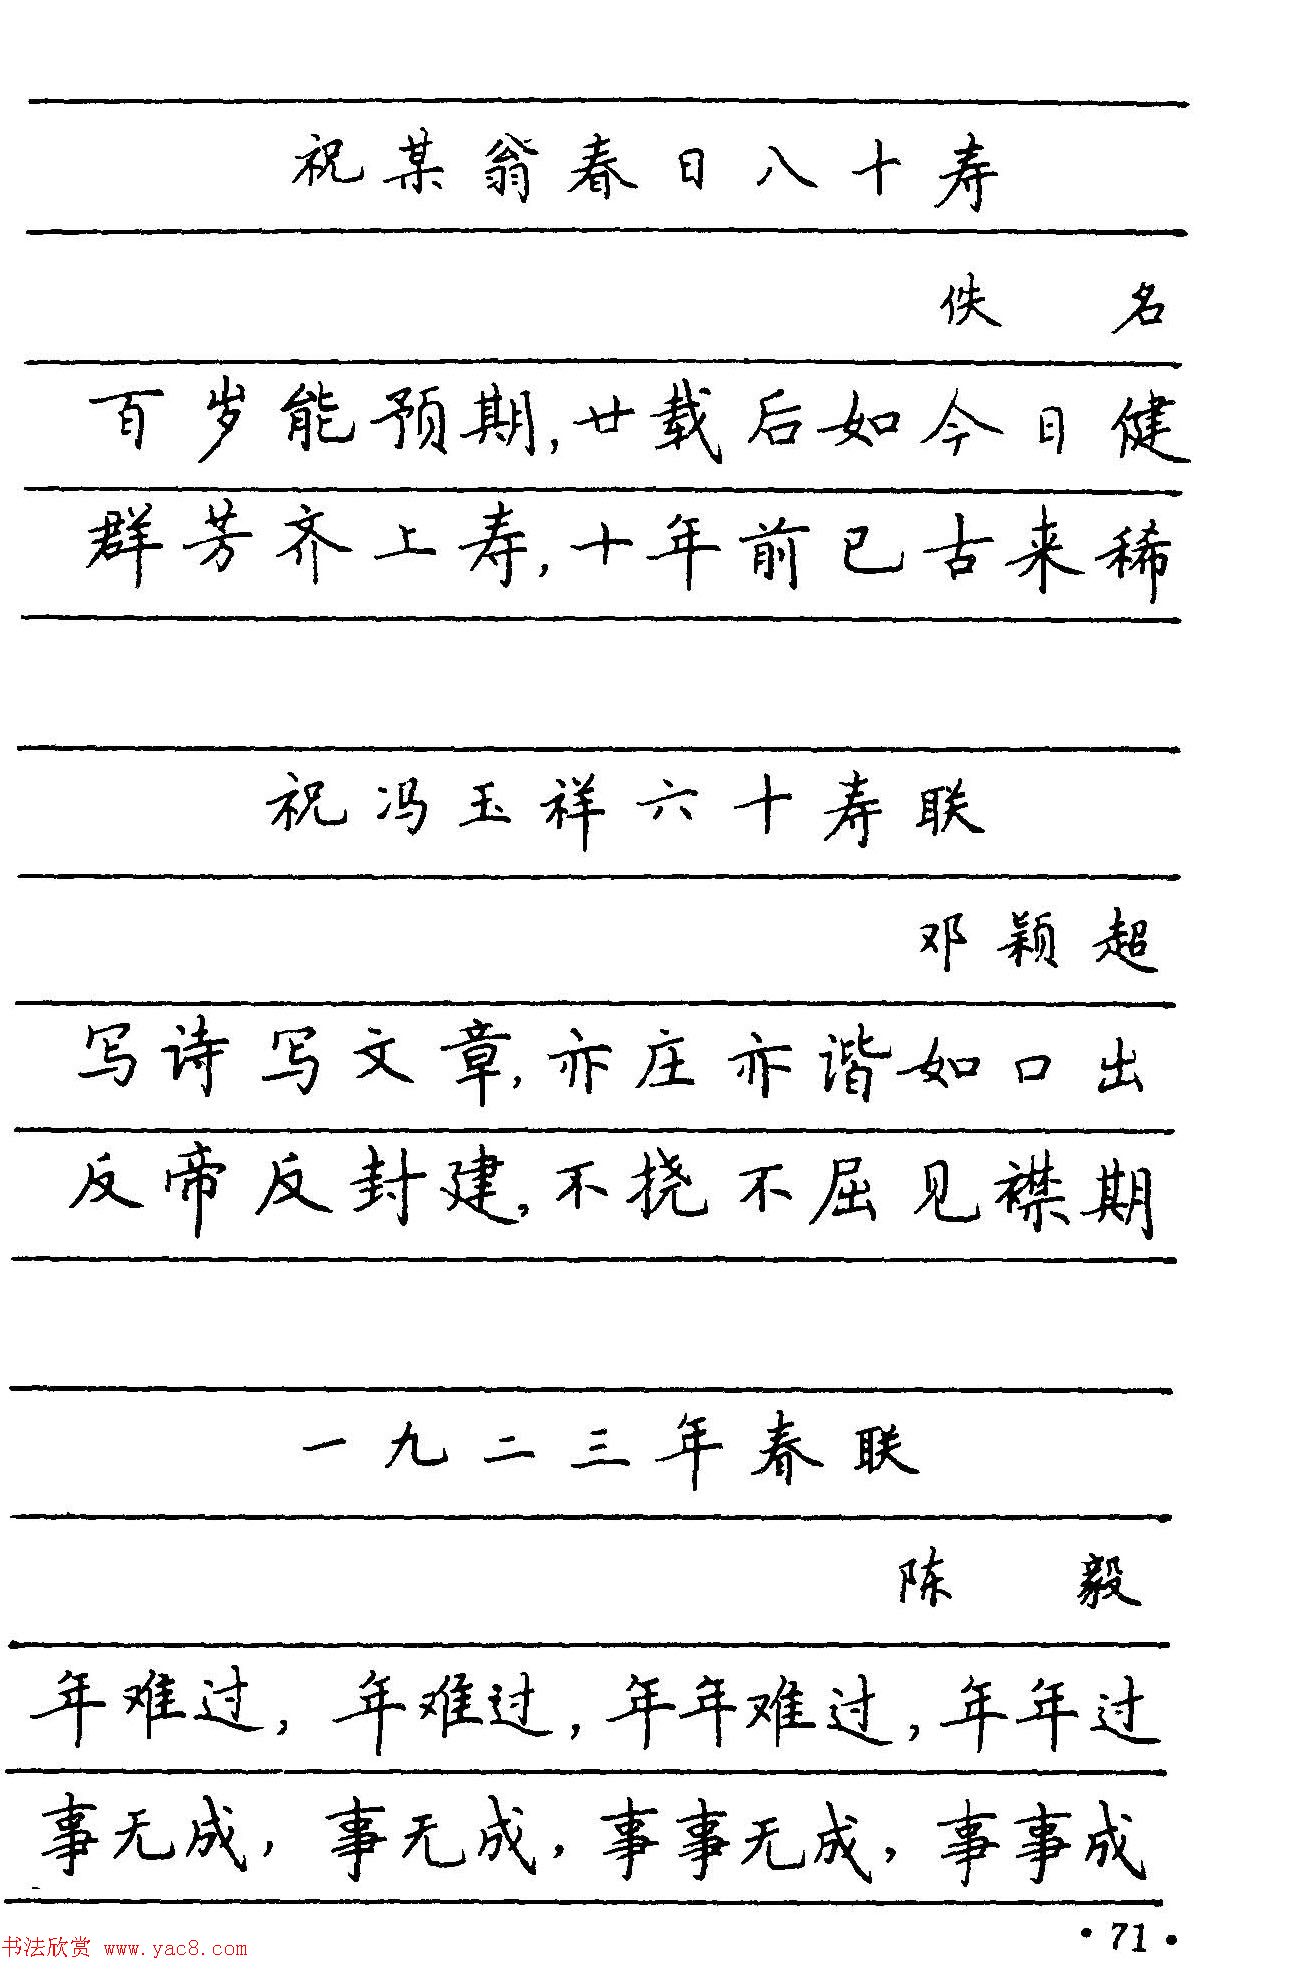 祝某翁春日八十寿
佚名
百岁能预期,廿载后如今日健
群芳齐上寿,十年前已古来稀
祝冯玉祥六十寿联
邓颖超
写诗写文章,亦庄亦谐如口出
反帝反封建,不挠不屈见襟期
一九二三年春联
陈毅
年难过,年难过,年年难过,年年过
事无成,事无成,事事无成,事事成
·71·
书法欣赏 www.yac8.com